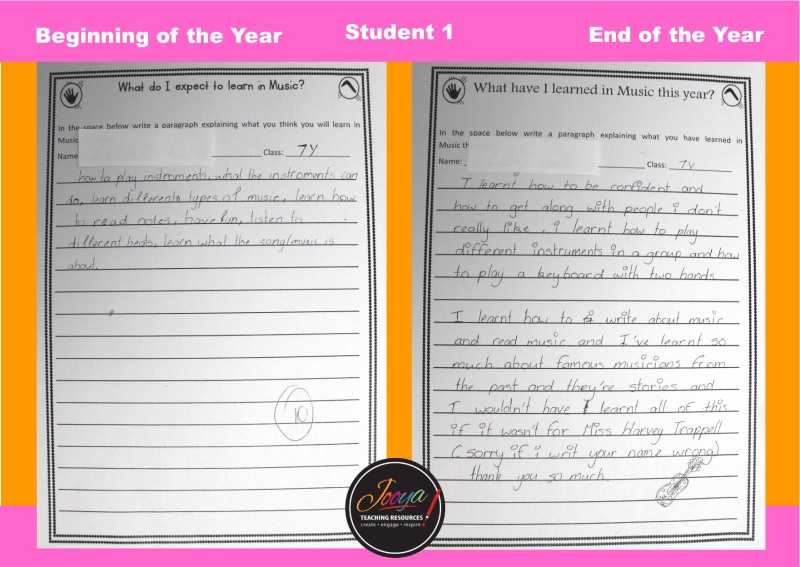 Beginning of the Year
Student 1
End of the Year
What do I expect to learn in Music?
In the space below write a paragraph explaining what you think you will learn in
Music
Name
Class: 7Y
how to play instruments, what the instroments can
do, learn differente types of music, learn how
to read notes, have fun, listen to
different beats, learn what the song/music is
about.
10
What have I learned in Music this year?
In the space below write a paragraph explaining what you have learned in
Music th
Name:
Class: 7Y
I learnt how to be confident and
how to get along with people i don't
really like, i learnt how to play
different instruments in a group and how
to play a keyboard with two hands
I learnt how to write about music
and read music and I've learnt so
much about famous musicians from
the past and they're stories and
I wouldn't have learnt all of this
if it wasn't for Miss Harvey Trappell
(sorry if i writ your name wrong)
thank you so much.
Jooya
TEACHING RESOURCES
create • engage • inspire